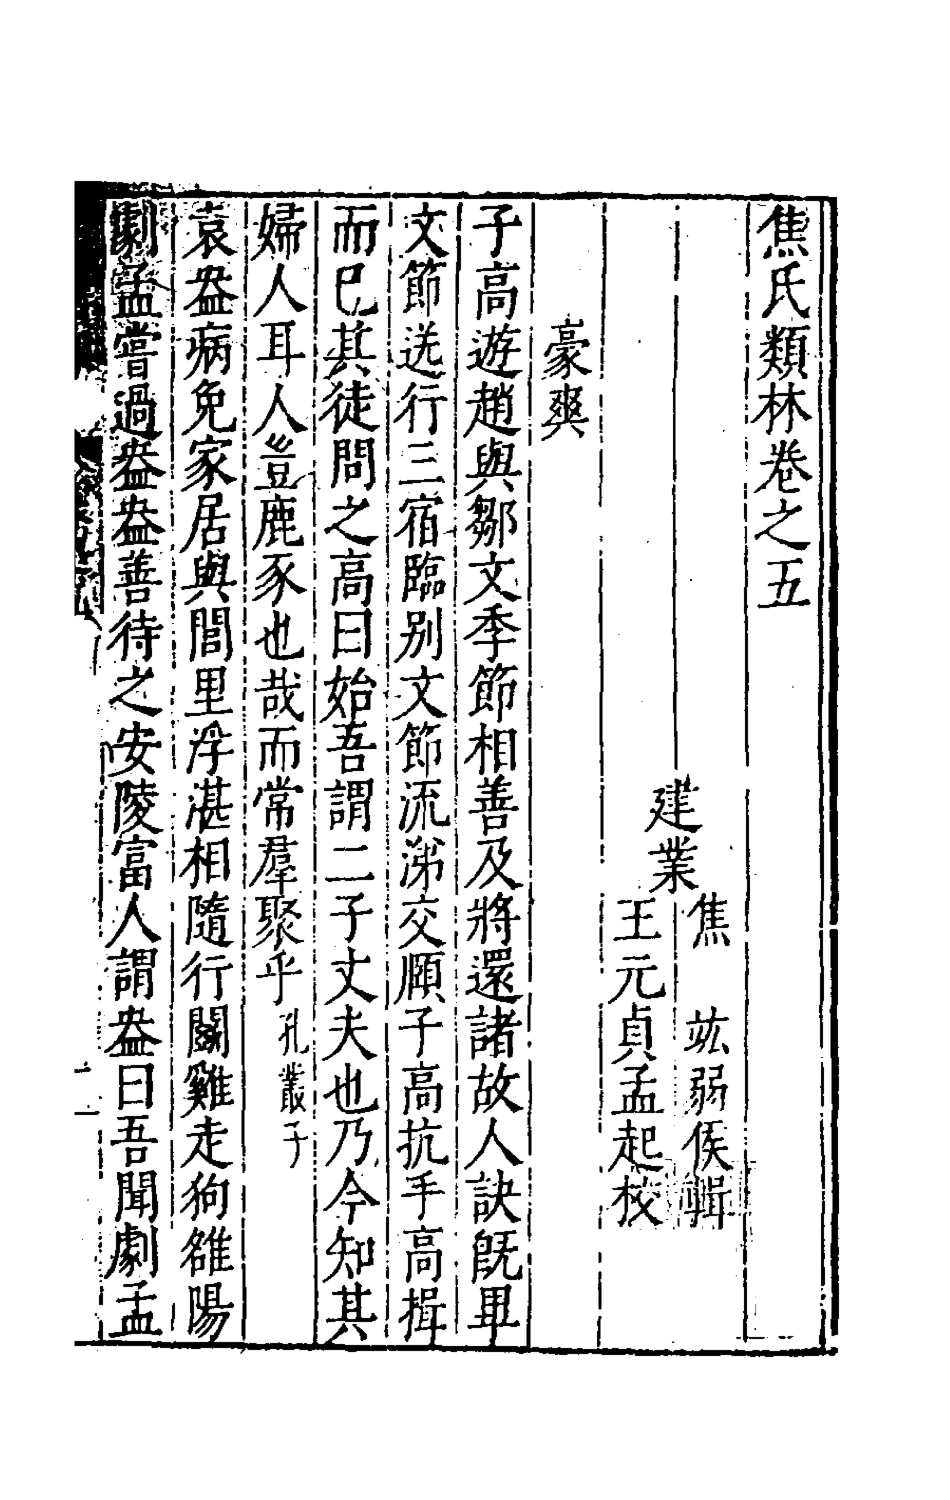 焦氏類林卷之五
建業
焦　竑弱侯輯
王元貞孟起校
豪爽
子高遊趙與鄒文季節相善及將還諸故人訣旣畢
文節送行三宿臨别文節流涕交頤子高抗手高揖
而已其徒問之高曰始吾謂二子丈夫也乃今知其
婦人耳人豈鹿豕也哉而常羣聚乎孔叢子
袁盎病免家居與閭里浮湛相隨行鬬雞走狗雒陽
劇孟嘗過盎盎善待之安陵富人謂盎曰吾聞劇孟